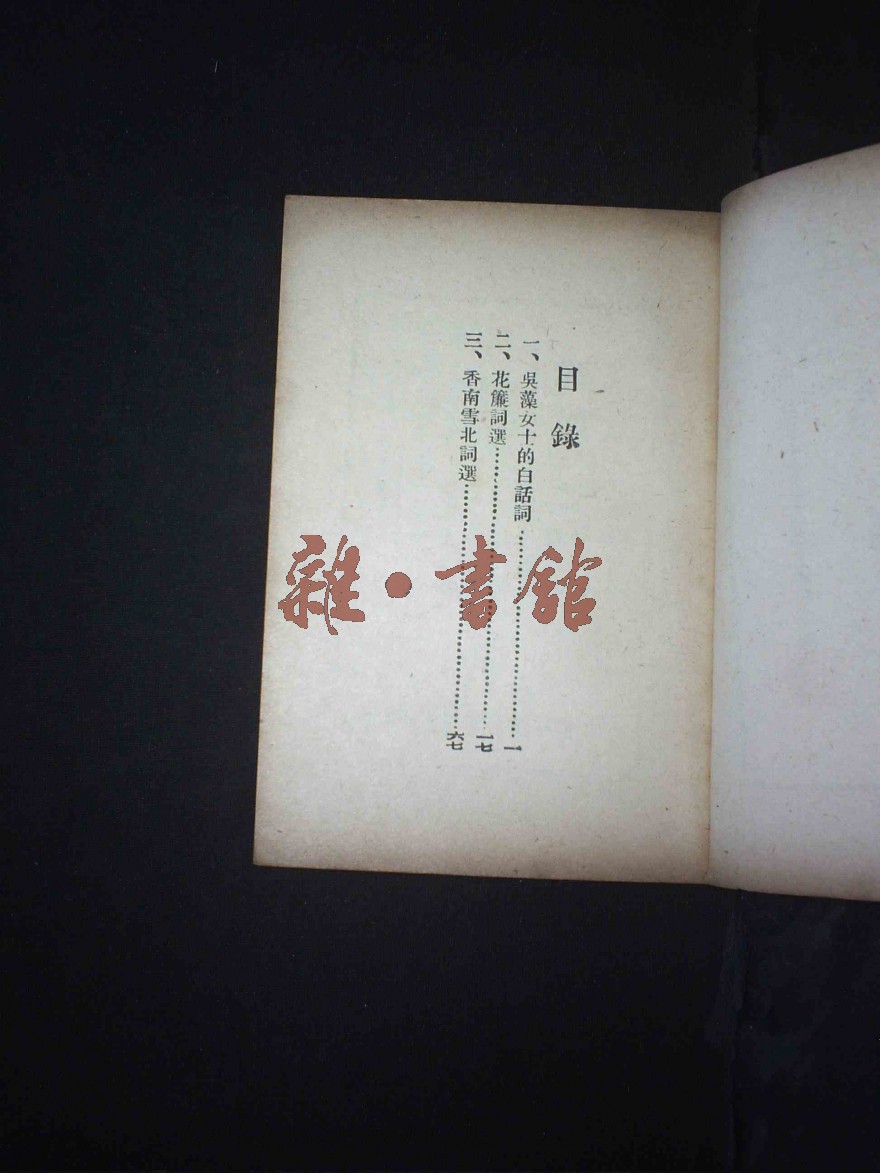 目錄
一、吳藻女士的白話詞……一
二、花簾詞選……一七
三、香南雪北詞選……六七
雜·書館